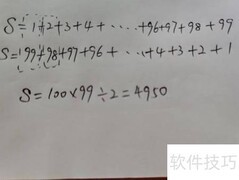 S=1+2+3+4+······+96+97+98+99
S=99+98+97+96+···+4+3+2+1
S=100×99÷2=4950
软件技巧